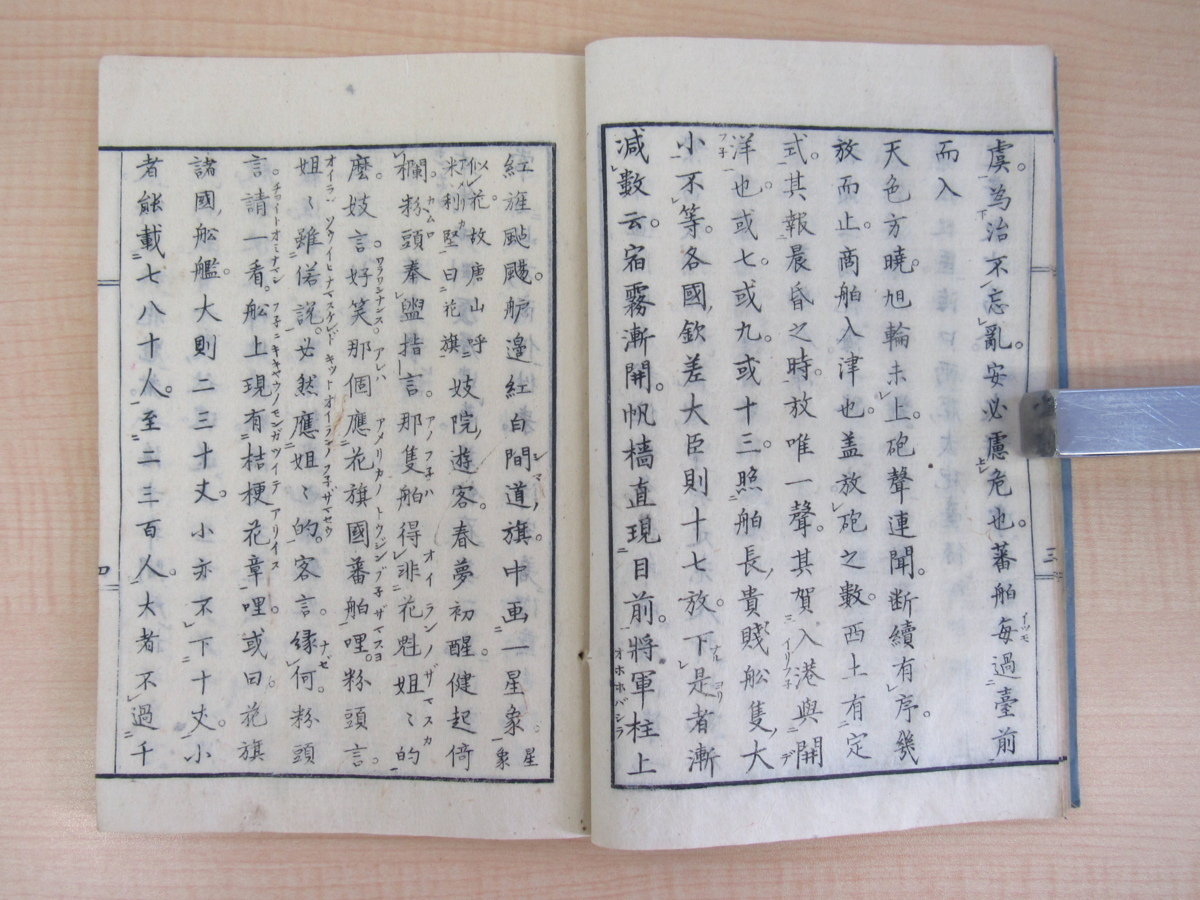 虞。為治不忘亂。安必慮危也。蕃舶每過臺前
而入
天色方曉。旭輪未上。砲聲連聞。断續有序。幾
放而止。商舶入津也。盖放砲之數。西土有定
式。其報晨昏之時。放唯一聲。其賀入港與開
洋也。或七。或九。或十三。照舶長貴賤舩隻大
小不等。各國欽差大臣則十七放。下是者漸
減數云。宿霧漸開。帆檣直現目前。將軍柱上
三
紅旌颭颺。舮邊紅白間道。旗中画一星象 星象
似花。故唐山呼 米利堅曰花旗 妓院遊客。春夢初醒。健起倚
欄。粉頭奉盥。指言。那隻舶得非花魁姐〻的
麼。妓言。好笑那個應花旗國蕃舶哩。粉頭言。
姐〻雖偌説。必然應姐〻的。客言。縁何。粉頭
言。請一看。舩上現有桔梗花章哩。或曰。花旗
諸國舩艦。大則二三十丈。小亦不下十丈。小
者能載七八十人。至二三百人。大者不過千
四